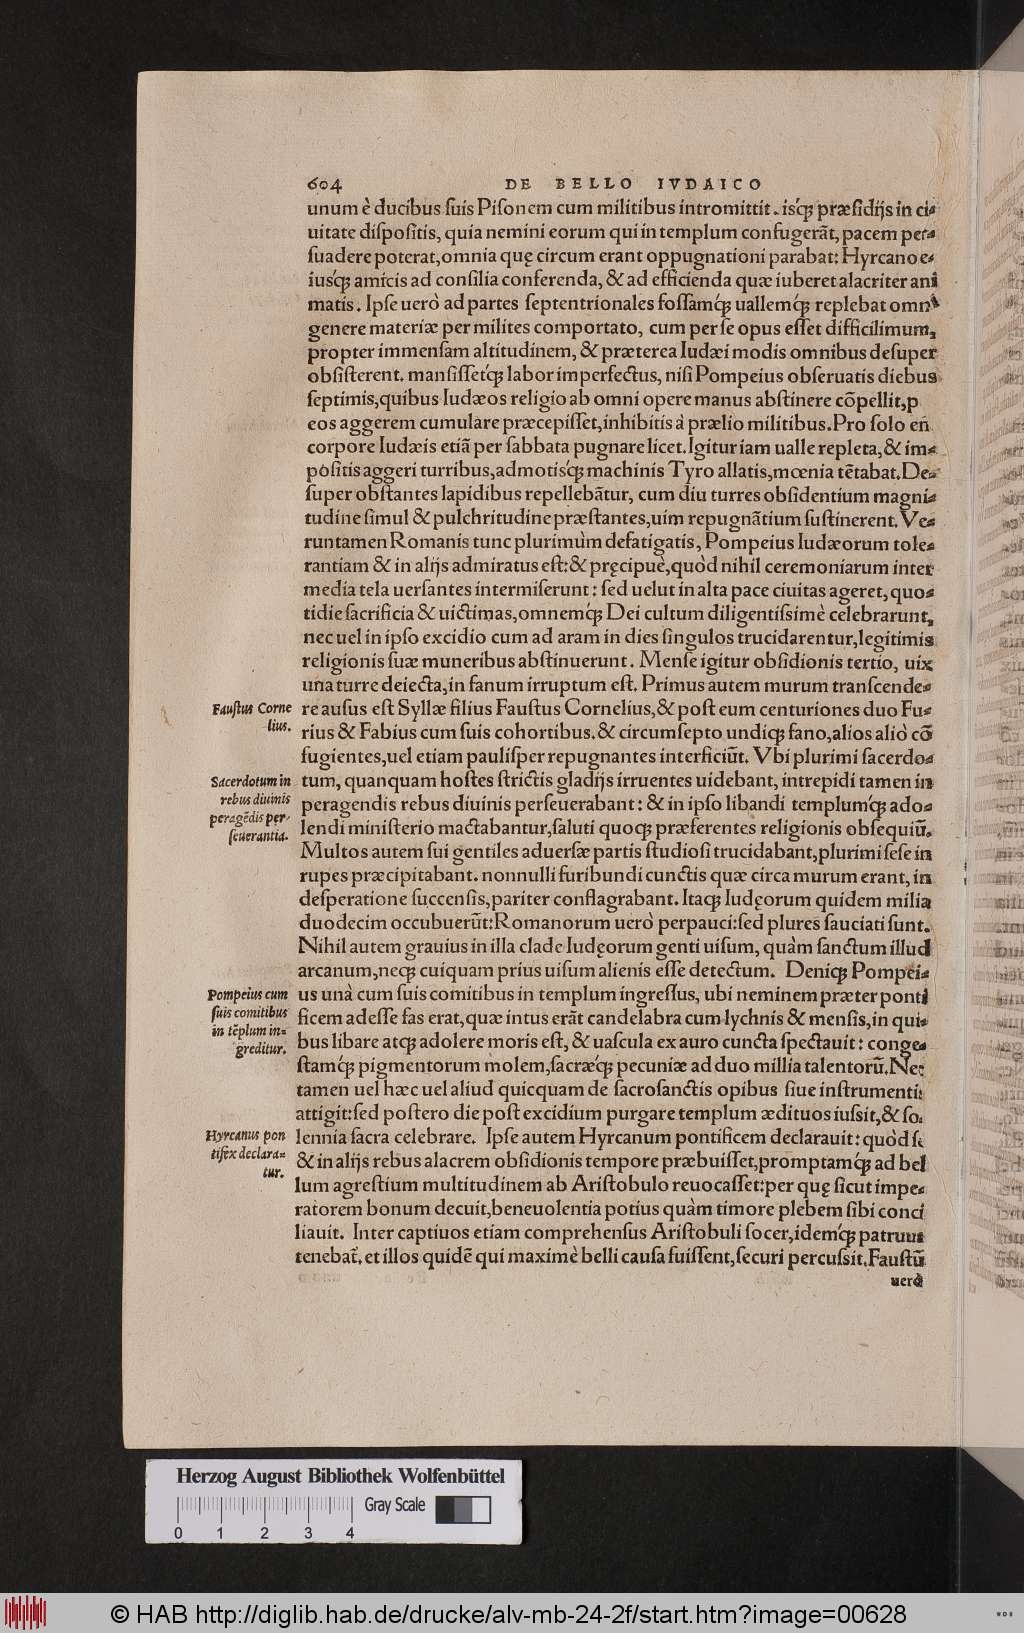 604 DE BELLO IVDAICO
unum è ducibus ſuis Piſonem cum militibus intromittit. isq́; præſidijs in ci-
uitate diſpoſitis, quia nemini eorum qui in templum confugerãt, pacem per-
ſuadere poterat, omnia quę circum erant oppugnationi parabat: Hyrcano e-
iusq́; amicis ad conſilia conferenda, & ad efficienda quæ iuberet alacriter ani
matis. Ipſe uerò ad partes ſeptentrionales foſſamq́; uallemq́; replebat omni
genere materiæ per milites comportato, cum per ſe opus eſſet difficilimum,
propter immenſam altitudinem, & præterea Iudæi modis omnibus deſuper
obſiſterent. manſiſſetq́; labor imperfectus, niſi Pompeius obſeruatis diebus
ſeptimis, quibus Iudæos religio ab omni opere manus abſtinere cõpellit, p
eos aggerem cumulare præcepiſſet, inhibitis à prælio militibus. Pro ſolo eñ
corpore Iudæis etiã per ſabbata pugnare licet. Igitur iam ualle repleta, & im-
poſitis aggeri turribus, admotisq́; machinis Tyro allatis, mœnia tẽtabat. De-
ſuper obſtantes lapidibus repellebãtur, cum diu turres obſidentium magni-
tudine ſimul & pulchritudine præſtantes, uim repugnãtium ſuſtinerent. Ve-
runtamen Romanis tunc plurimùm defatigatis, Pompeius Iudæorum tole-
rantiam & in alijs admiratus eſt: & pręcipuè, quòd nihil ceremoniarum inter
media tela uerſantes intermiſerunt: ſed uelut in alta pace ciuitas ageret, quo-
tidie ſacrificia & uictimas, omnemq́; Dei cultum diligentiſsimè celebrarunt,
nec uel in ipſo excidio cum ad aram in dies ſingulos trucidarentur, legitimis
religionis ſuæ muneribus abſtinuerunt. Menſe igitur obſidionis tertio, uix
una turre deiecta, in fanum irruptum eſt. Primus autem murum tranſcende-
Fauſtus Corne
lius.
re auſus eſt Syllæ filius Fauſtus Cornelius, & poſt eum centuriones duo Fu-
rius & Fabius cum ſuis cohortibus. & circumſepto undiq; fano, alios aliò cõ
fugientes, uel etiam pauliſper repugnantes interficiũt. Vbi plurimi ſacerdo-
Sacerdotum in
rebus diuinis
peragẽdis per-
ſeuerantia.
tum, quanquam hoſtes ſtrictis gladijs irruentes uidebant, intrepidi tamen in
peragendis rebus diuinis perſeuerabant: & in ipſo libandi templumq́; ado-
lendi miniſterio mactabantur, ſaluti quoq; præferentes religionis obſequiũ.
Multos autem ſui gentiles aduerſæ partis ſtudioſi trucidabant, plurimi ſeſe in
rupes præcipitabant. nonnulli furibundi cunctis quæ circa murum erant, in
deſperatione ſuccenſis, pariter conflagrabant. Itaq; Iudęorum quidem milia
duodecim occubuerũt: Romanorum uerò perpauci: ſed plures ſauciati ſunt.
Nihil autem grauius in illa clade Iudęorum genti uiſum, quàm ſanctum illud
arcanum, neq; cuiquam prius uiſum alienis eſſe detectum. Deniq; Pompei-
Pompeius cum
ſuis comitibus
in tẽplum in-
greditur.
us unà cum ſuis comitibus in templum ingreſſus, ubi neminem præter ponti
ficem adeſſe fas erat, quæ intus erãt candelabra cum lychnis & menſis, in qui-
bus libare atq; adolere moris eſt, & uaſcula ex auro cuncta ſpectauit: conge-
ſtamq́; pigmentorum molem, ſacræq́; pecuniæ ad duo millia talentorũ. Nec
tamen uel hæc uel aliud quicquam de ſacroſanctis opibus ſiue inſtrumentis
attigit: ſed poſtero die poſt excidium purgare templum ædituos iuſsit, & ſo-
Hyrcanus pon
tifex declara-
tur.
lennia ſacra celebrare. Ipſe autem Hyrcanum pontificem declarauit: quòd ſe
& in alijs rebus alacrem obſidionis tempore præbuiſſet, promptamq́; ad bel
lum agreſtium multitudinem ab Ariſtobulo reuocaſſet: per quę ſicut impe-
ratorem bonum decuit, beneuolentia potius quàm timore plebem ſibi conci
liauit. Inter captiuos etiam comprehenſus Ariſtobuli ſocer, idemq́; patruus
tenebat̃. et illos quidẽ qui maximè belli cauſa fuiſſent, ſecuri percuſsit. Fauſtũ
uerò
Herzog August Bibliothek Wolfenbüttel
Gray Scale
0 1 2 3 4
© HAB http://diglib.hab.de/drucke/alv-mb-24-2f/start.htm?image=00628